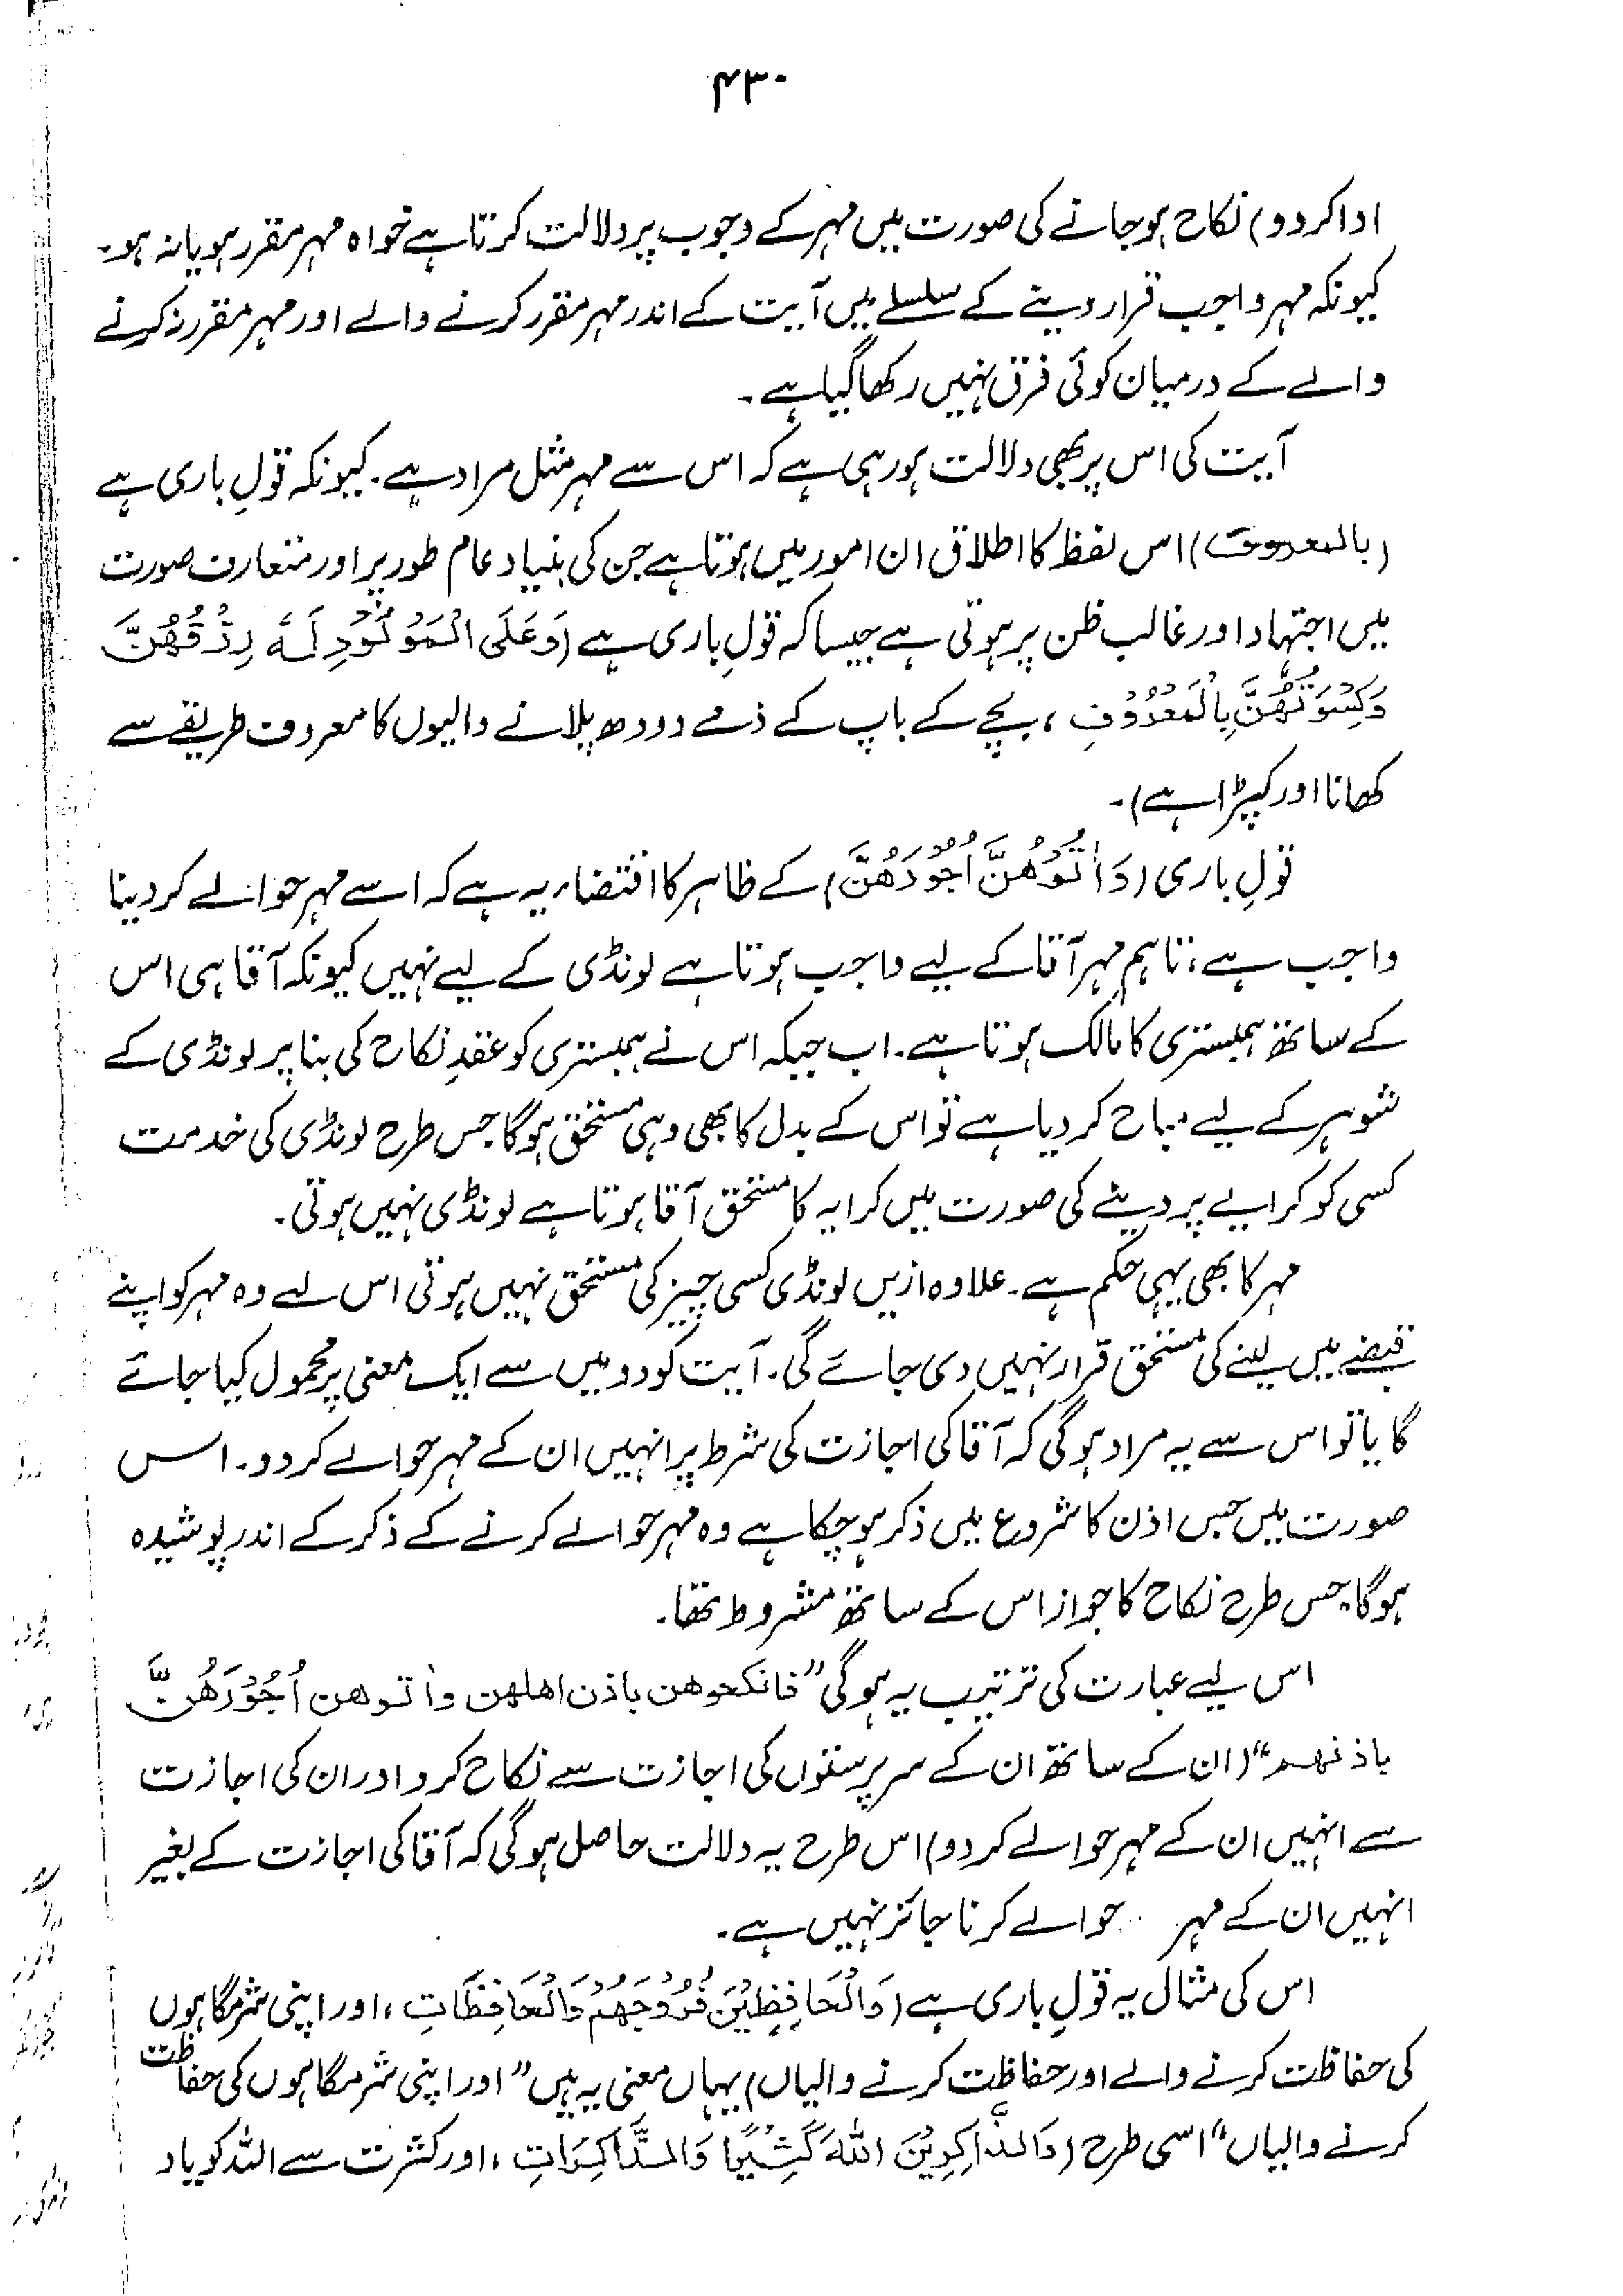 ۴۳۰
ادا کردو) نکاح ہو جانے کی صورت میں مہر کے وجوب پر دلالت کرتا ہے خواہ مہر مقرر ہو یا نہ ہو۔
کیونکہ مہر واجب قرار دینے کے سلسلے میں آیت کے اندر مہر مقرر کرنے والے اور مہر مقرر نہ کرنے
والے کے درمیان کوئی فرق نہیں رکھا گیا ہے۔
آیت کی اس پر بھی دلالت ہو رہی ہے کہ اس سے مہر مثل مراد ہے۔ کیونکہ قولِ باری ہے
(بالمعروف) اس لفظ کا اطلاق ان امور میں ہوتا ہے جن کی بنیاد عام طور پر اور متعارف صورت
میں اجتہاد اور غالب ظن پر ہوتی ہے جیسا کہ قولِ باری ہے (وَعَلَی الْمَوْلُوْدِ لَهٗ رِزْقُهُنَّ
وَكِسْوَتُهُنَّ بِالْمَعْرُوْفِ، بچے کے باپ کے ذمے دودھ پلانے والیوں کا معروف طریقے سے
کھانا اور کپڑا ہے)۔
قولِ باری (وَاٰتُوْهُنَّ اُجُوْرَهُنَّ) کے ظاہر کا اقتضاء یہ ہے کہ اسے مہر حوالے کر دینا
واجب ہے، تاہم مہر آقا کے لیے واجب ہوتا ہے لونڈی کے لیے نہیں کیونکہ آقا ہی اس
کے ساتھ ہمبستری کا مالک ہوتا ہے۔ اب جبکہ اس نے ہمبستری کو عقدِ نکاح کی بنا پر لونڈی کے
شوہر کے لیے مباح کر دیا ہے تو اس کے بدل کا بھی وہی مستحق ہوگا جس طرح لونڈی کی خدمت
کسی کو کرایے پر دینے کی صورت میں کرایہ کا مستحق آقا ہوتا ہے لونڈی نہیں ہوتی۔
مہر کا بھی یہی حکم ہے۔ علاوہ ازیں لونڈی کسی چیز کی مستحق نہیں ہوتی اس لیے وہ مہر کو اپنے
قبضے میں لینے کی مستحق قرار نہیں دی جائے گی۔ آیت کو دو میں سے ایک معنی پر محمول کیا جائے
گا یا تو اس سے یہ مراد ہوگی کہ آقا کی اجازت کی شرط پر انہیں ان کے مہر حوالے کردو۔ اس
صورت میں جس اذن کا شروع میں ذکر ہو چکا ہے وہ مہر حوالے کرنے کے ذکر کے اندر پوشیدہ
ہوگا۔ جس طرح نکاح کا جواز اس کے ساتھ مشروط تھا۔
اس لیے عبارت کی ترتیب یہ ہوگی "فانکحوهن باذن اهلهن واٰتوهن اُجُوْرَهُنَّ
باذنهم" (ان کے ساتھ ان کے سرپرستوں کی اجازت سے نکاح کرو اور ان کی اجازت
سے انہیں ان کے مہر حوالے کردو) اس طرح یہ دلالت حاصل ہوگی کہ آقا کی اجازت کے بغیر
انہیں ان کے مہر حوالے کرنا جائز نہیں ہے۔
اس کی مثال یہ قولِ باری ہے (وَالْحَافِظِیْنَ فُرُوْجَهُمْ وَالْحَافِظَاتِ، اور اپنی شرمگاہوں
کی حفاظت کرنے والے اور حفاظت کرنے والیاں) یہاں معنی یہ ہیں "اور اپنی شرمگاہوں کی حفاظت
کرنے والیاں" اسی طرح (وَالذَّاكِرِیْنَ اللّٰهَ كَثِیْرًا وَالذَّاكِرَاتِ، اور کثرت سے اللہ کو یاد